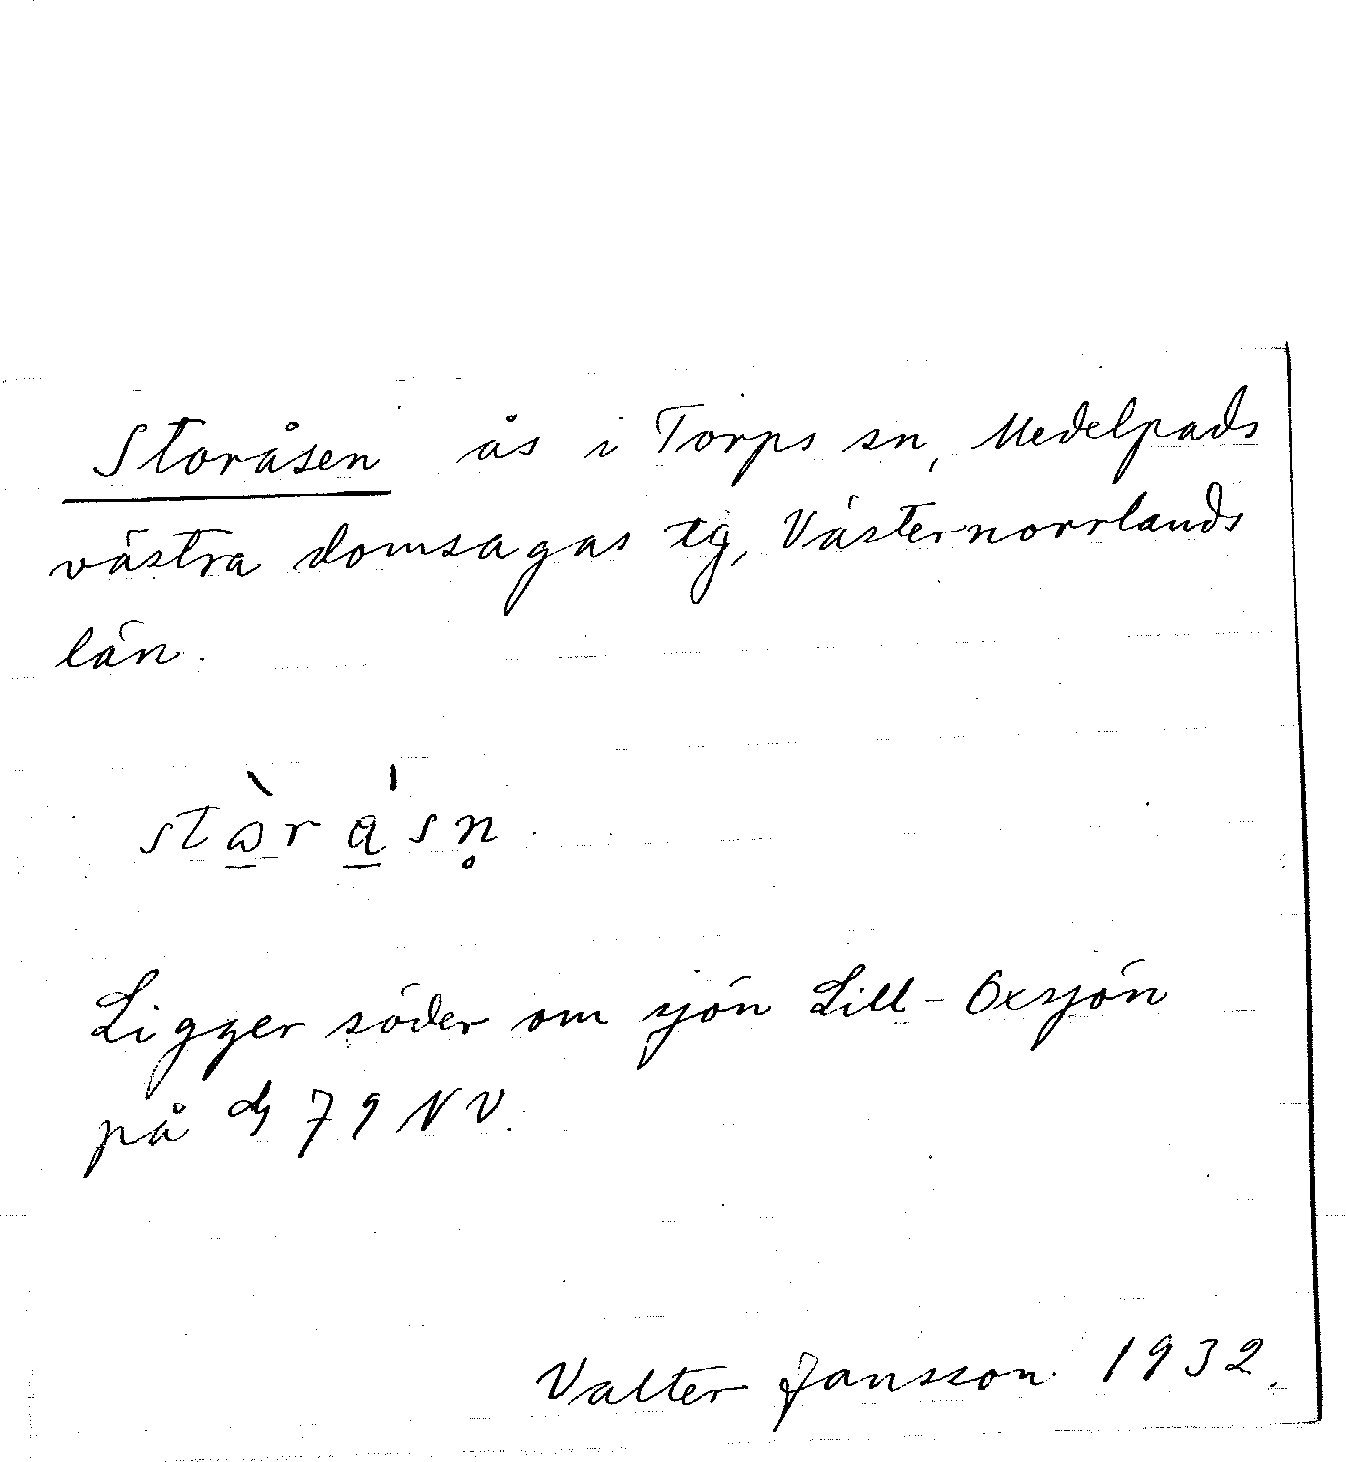 Storåsen ås i Torps sn, Medelpads
västra domsagas tg, Västernorrlands
län.
Ligger söder om sjön Lill-Oxsjön
på 79 NV.
Valter Jansson 1932.